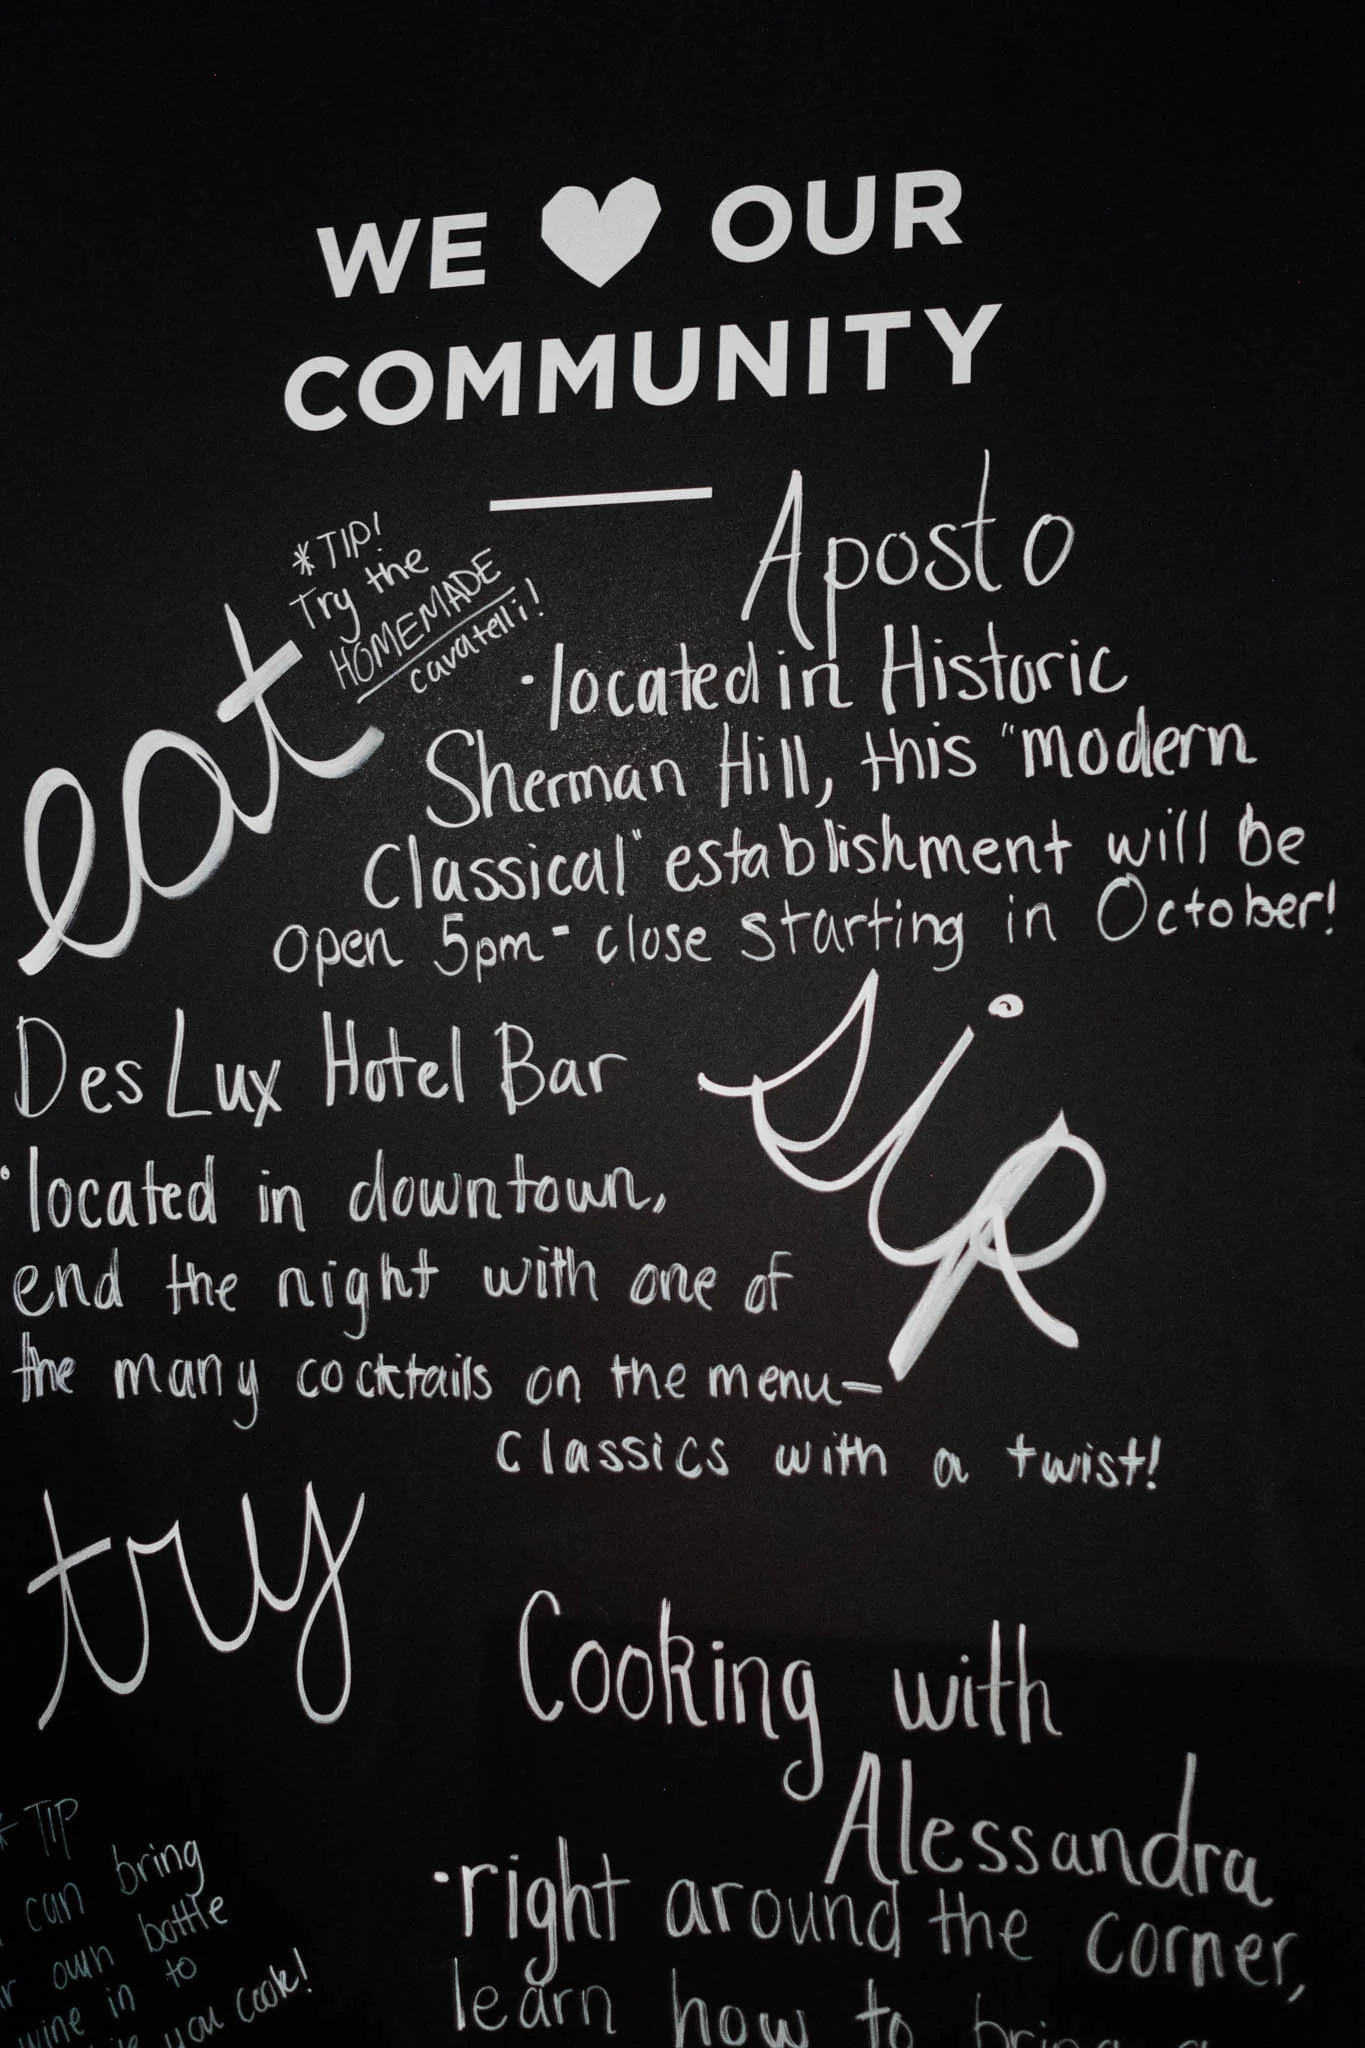 WE ♥ OUR
COMMUNITY
eat
*TIP!
Try the
HOMEMADE
cavatelli!
Aposto
·located in Historic
Sherman Hill, this "modern
Classical" establishment will be
open 5pm-close starting in October!
sip
Des Lux Hotel Bar
·located in downtown,
end the night with one of
the many cocktails on the menu-
classics with a twist!
try
Cooking with
Alessandra
·right around the corner,
learn how to bring a
*TIP
can bring
own bottle
wine in to
you cook!